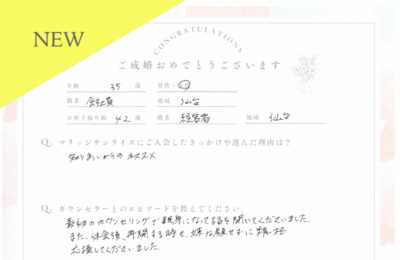 NEW
CONGRATULATIONS
ご成婚おめでとうございます
年齢 35 歳 男性・女
職業 会社員 地域 仙台
お相手様年齢 42 歳 職業 経営者 地域 仙台
Q. マリッジサンライズにご入会したきっかけや選んだ理由は?
知りあいからのオススメ
Q. カウンセラーとのエピソードを教えてください。
最初のカウンセリングで親身になって話を聞いてくださいました。
また、休会後、再開する時も、嫌な顔せずに積極
応援してくださいました。